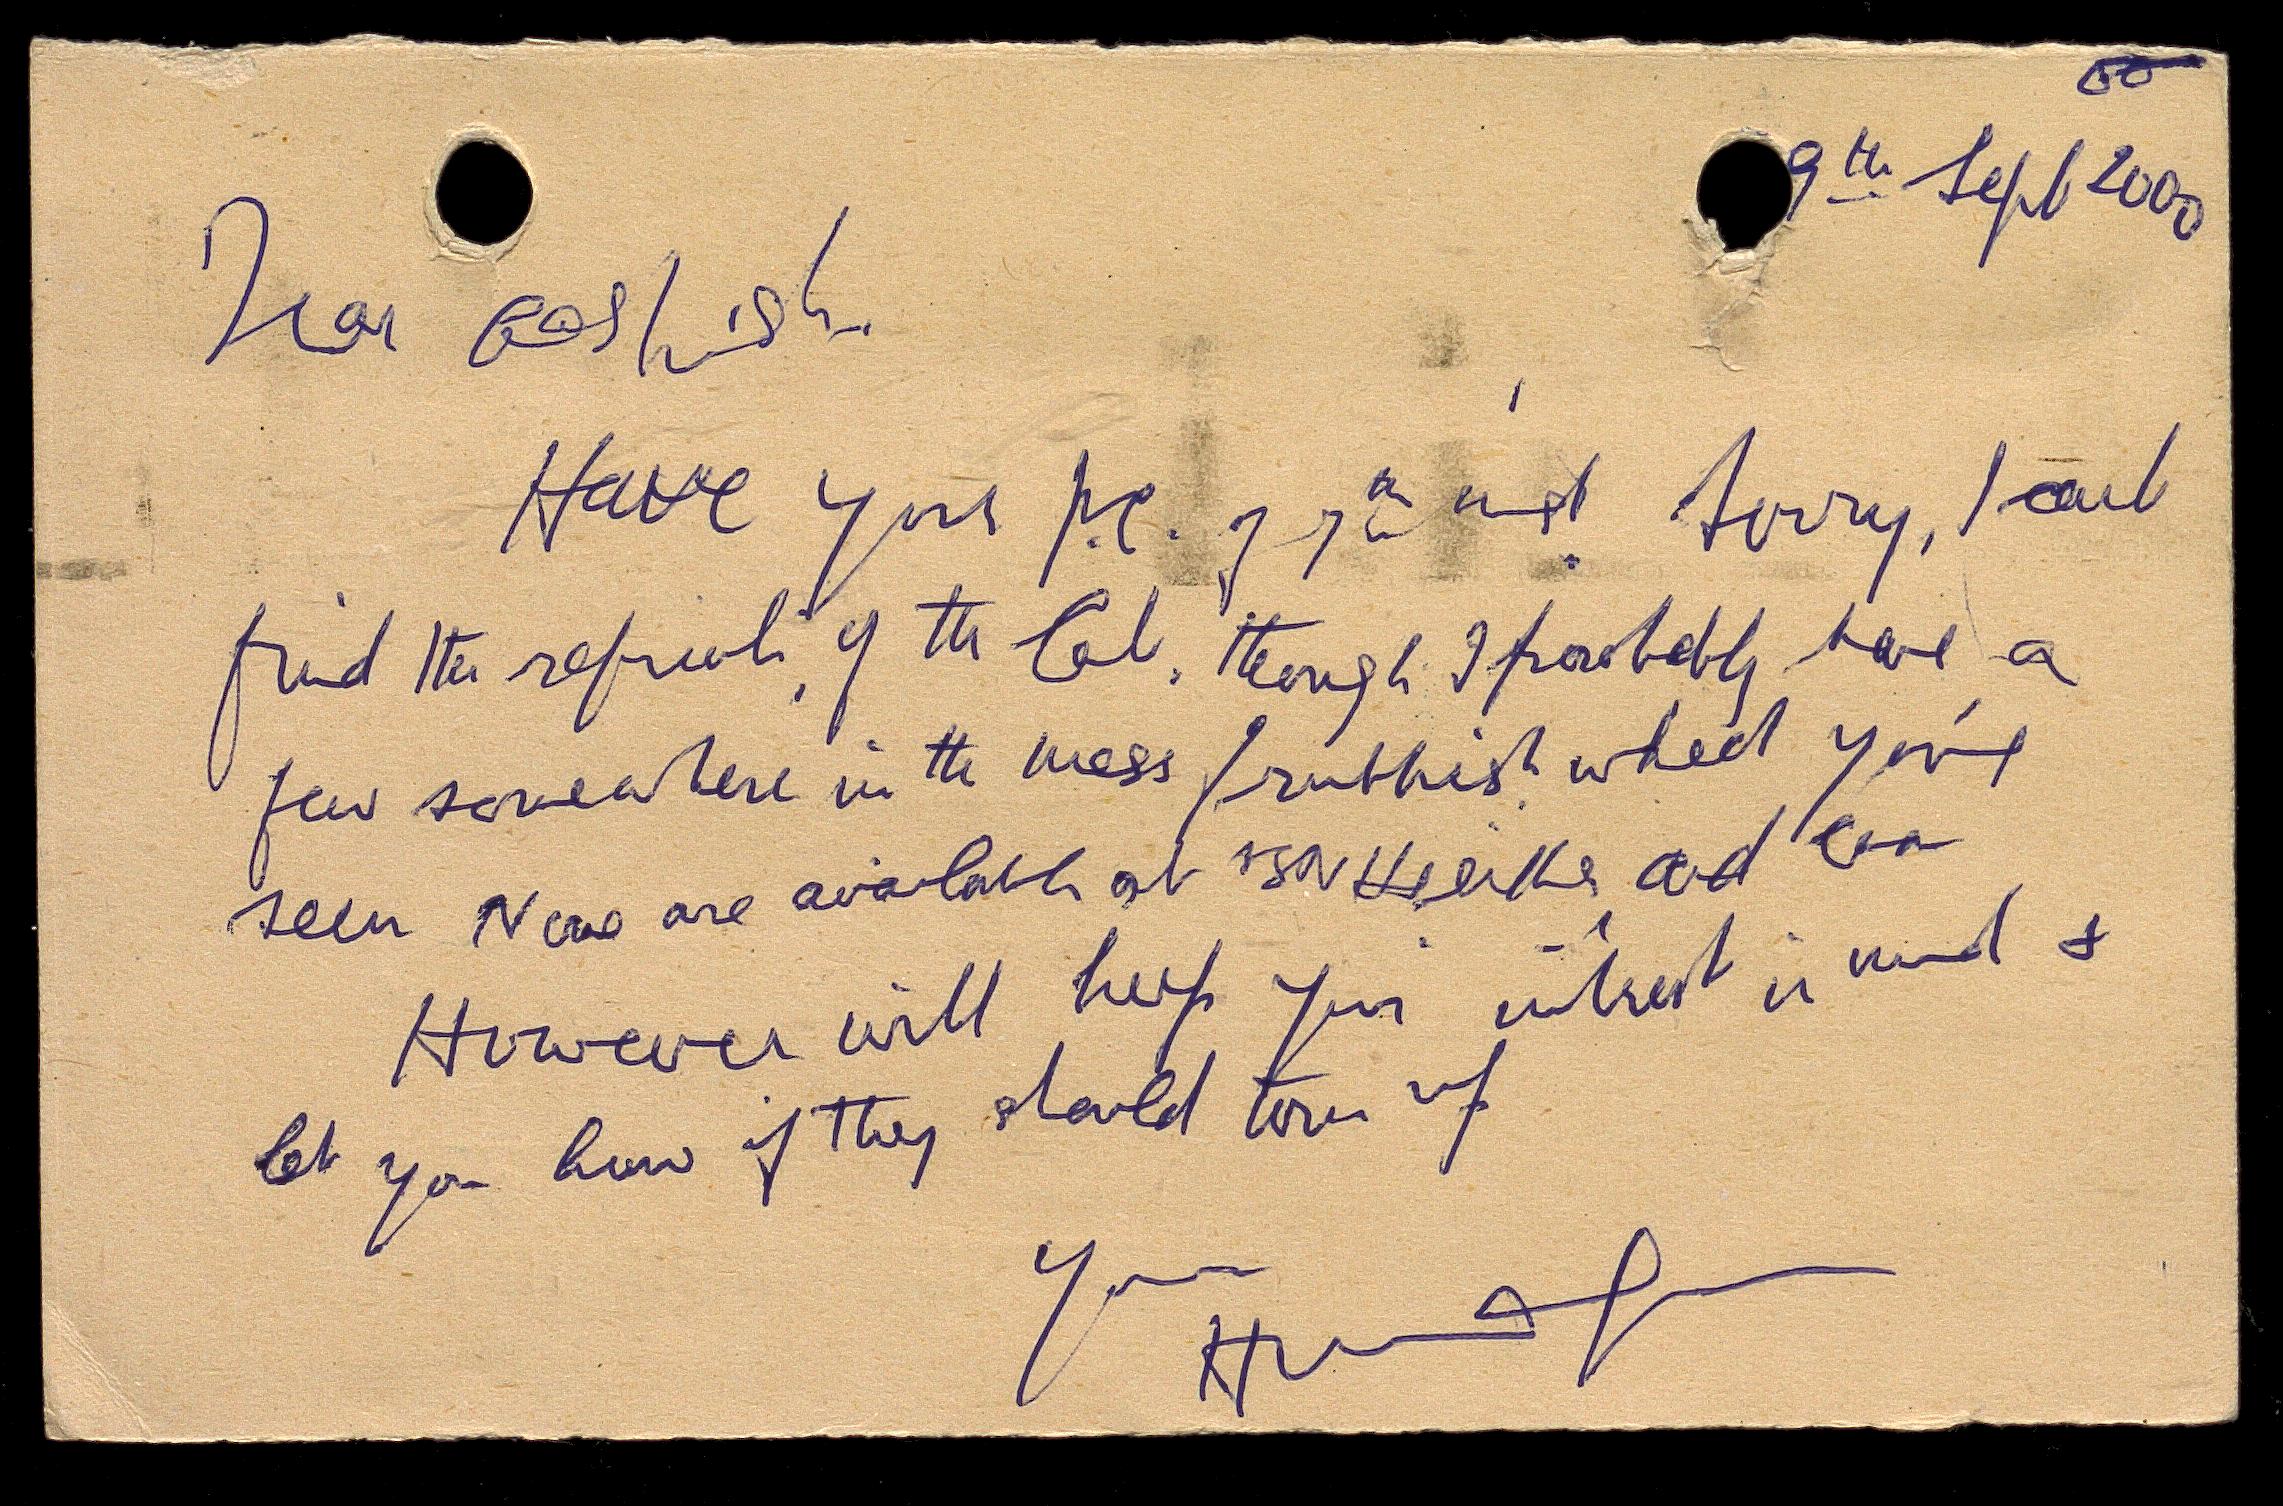 9th Sept 2000
Dear Aashish.
Have your p.c. of 7th inst. Sorry, I can't
find the reprints, of the Cat. though I probably have a
few somewhere in the mess of rubbish which you've
seen None are available at and
However will keep your interest in mind &
let you know if they should turn up
Yours